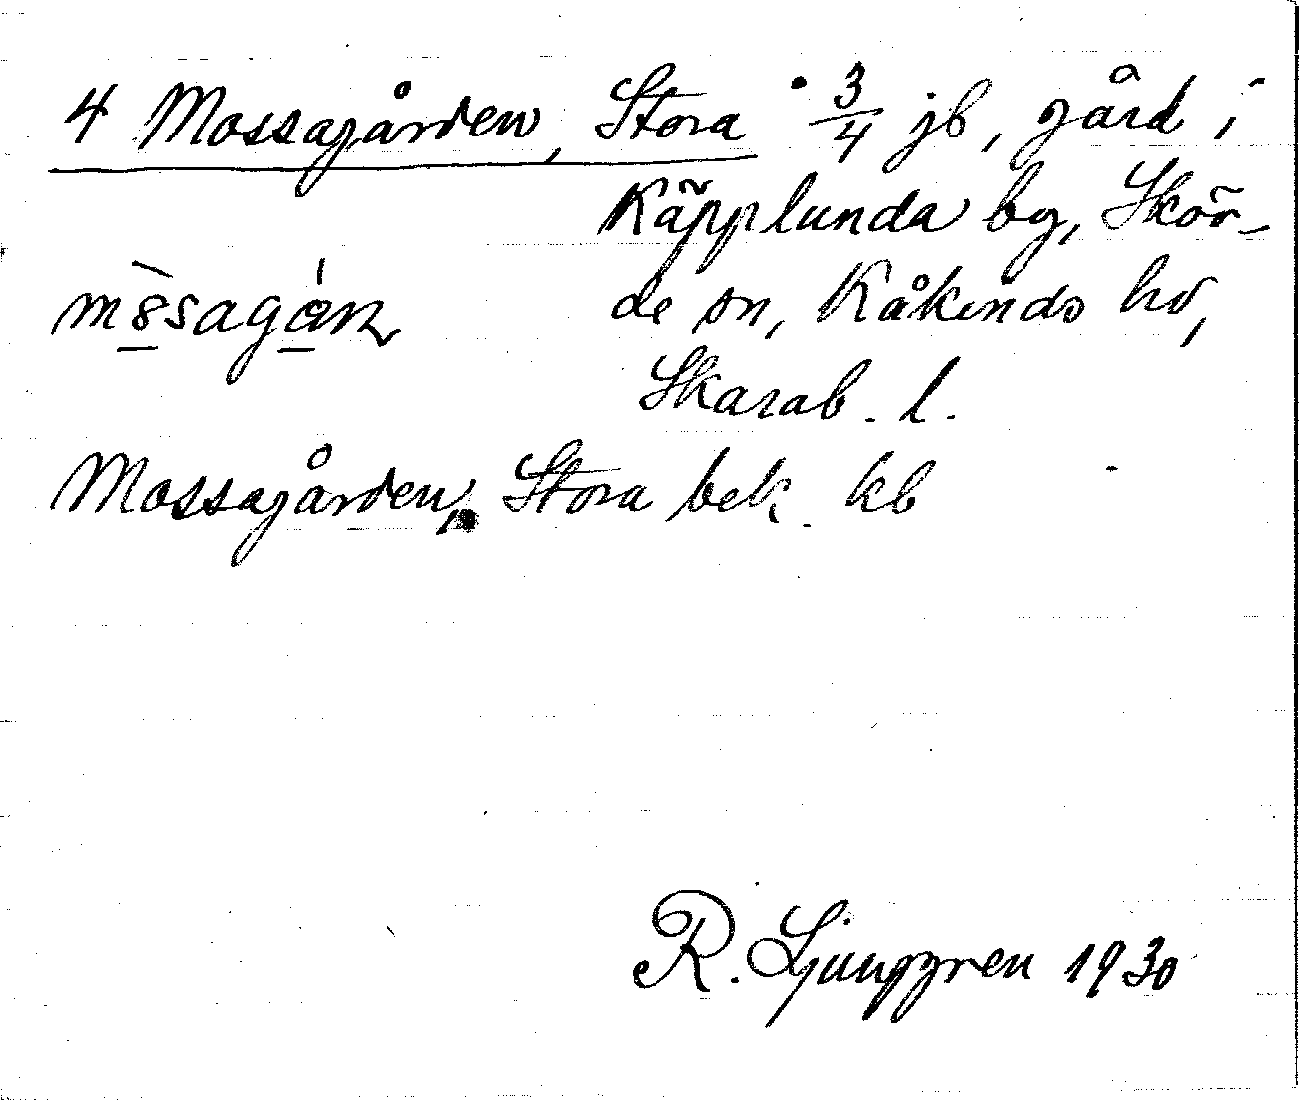 4 Mossagården, Stora 3/4 jb, gård i
Käpplunda by, Skör-
de sn, Kåkinds hd,
Skarab. l.
Mossagården, Stora bek. kb
R. Ljunggren 1930